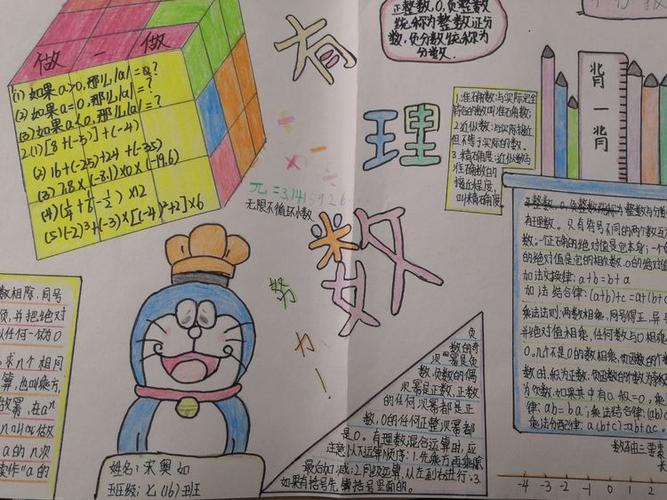 做一做
(1) 如果a>0,那么|a|=a?
(2) 如果a=0,那么|a|=?
(3) 如果a<0,那么|a|=?
2.(1) [8+(-5)]+(-4)
(2) 16+(-25)+24+(-35)
(3) 7.8×(-8.1)×0×(-19.6)
×12
(5) (-2)³+(-3)×[(-4)²+2]×6
有
理
数
π=3.1415926
无限不循环小数
努
力
!
正整数,0,负整数
统称为整数,正分
数,负分数统称为
分数.
1.准确数:与实际完全
符合的数叫准确数;
2.近似数:与实际接近
但不等于实际的数.
3.精确度:近似数与
准确数的
接近程度,
叫精确度
背
一
背
正整数,0,负整数统称为整数与分
有理数。只有符号不同的两个数互
数,一正确的绝对值是它本身;一个
的绝对值是它的相反数.0的绝对值
加法交换律:a+b=b+a
加法结合律:(a+b)+c=a+(b+
乘法法则:两数相乘,同号得正,异号
并把绝对值相乘,任何数与0相乘
0,几个不是0的数相乘,负因数的个数
数时,积为正数;负因数的个数为奇数
为负数,如果其中有a积=0.乘
律:ab=ba;乘法结合律:(ab)
乘法分配律:a(b+c)=ab+ac.
数轴三要素
-4 -3 -2 -1 0 1 2
数相除,同号
负,并把绝对
以任何一切为0
求n个相同
算,也叫乘方,
故幂,在aⁿ
n叫做
a的n次
读作"a的
姓名:宋奥如
班级:七(16)班
负
数的奇
次幂是负
数,负数的偶
次幂是正数,正数
的任何次幂都是正
数,0的任何正整次幂都
是0。有理数混合运算中,应
注意以下运算顺序:1.先乘方,再乘除
最后加减;2.同级运算,从左到右进行;3.
如果有括号先算括号里面的。